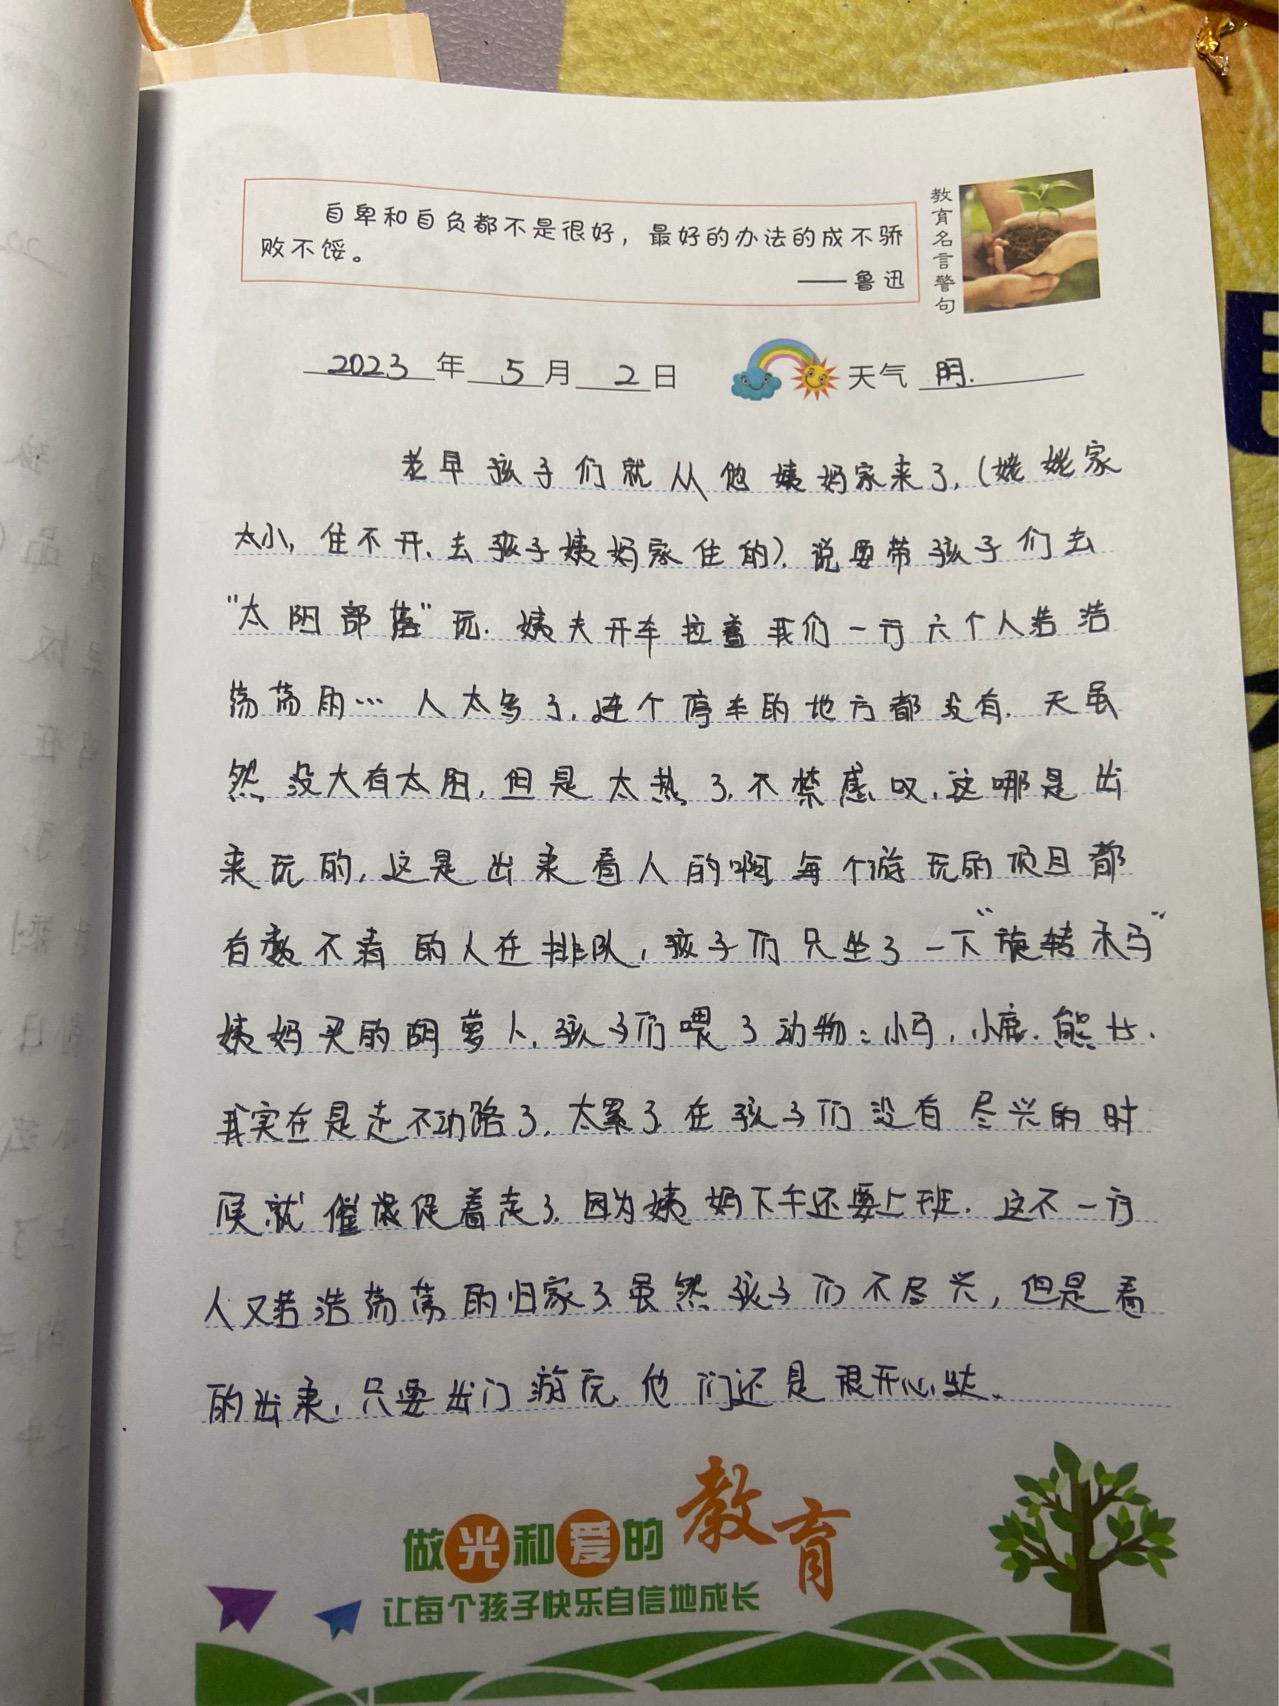 自卑和自负都不是很好，最好的办法的成不骄
败不馁。
——鲁迅
教育名言警句
2023年5月2日 天气 阴.
老早孩子们就从他姨妈家来了,(姥姥家
太小,住不开、去孩子姨妈家住的).说要带孩子们去
"太阳部落"玩.姨夫开车拉着我们一行六个人浩浩
荡荡的…人太多了,连个停车的地方都没有.天虽
然没大有太阳,但是太热了.不禁感叹,这哪是出
来玩的,这是出来看人的啊 每个游玩的项目都
有数不清的人在排队,孩子们只坐了一下"旋转木马"
姨妈买的胡萝卜,孩子们喂了动物:小马,小鹿.熊
我实在是走不动路了,太累了.在孩子们没有尽兴的时
候,就催促着走了.因为姨妈下午还要上班.这不一行
人又浩浩荡荡的归家了.虽然孩子们不尽兴,但是看
的出来,只要出门游玩、他们还是很开心哒、
做光和爱的教育
让每个孩子快乐自信地成长